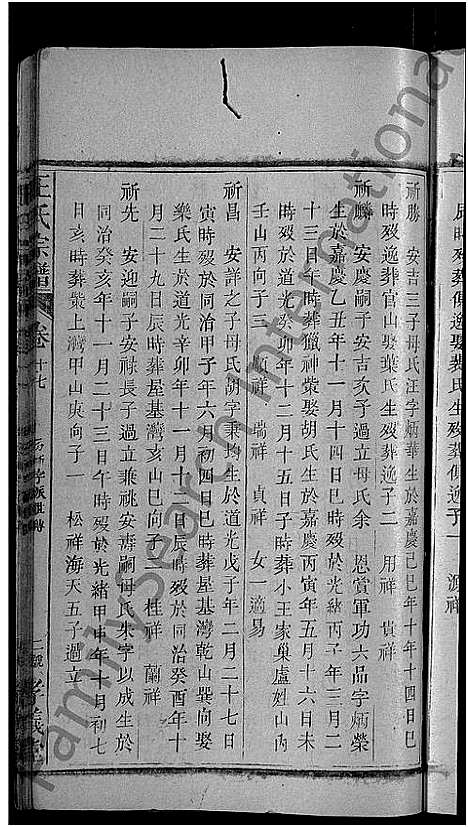 祈勝　安吉三子母氏汪字炳華生於嘉慶己巳年十年十四日巳
時殁逸葬官山娶葉氏生殁葬逸子二　用祥　貴祥
祈麟　安慶嗣子安吉次子過立母氏余　恩賞軍功六品字炳榮
生於嘉慶乙丑年十一月十四日巳時殁於光緒丙子年三月二
十三日午時葬獵神棠娶胡氏生於嘉慶丙寅年五月十六日未
時殁於道光癸卯年十二月十五日子時葬小王家巢盧姓山內
壬山丙向子三　祥　瑞祥　貞祥　女一適易
祈昌　安詳之子母氏胡字秉均生於道光戊子年二月二十七日
寅時殁於同治甲子年六月初四日巳時葬屋基灣乾山巽向娶
樂氏生於道光辛卯年十一月十二日辰時殁於同治癸酉年十
月二十九日辰時葬屋基灣亥山巳向子二　桂祥　蘭祥
祈先　安迎嗣子安祿長子過立兼祧安壽嗣母氏朱字以成生於
同治癸亥年十一月二十三日午時殁於光緒甲申年十月初七
日亥時葬棠上灣甲山庚向子一　松祥海天五子過立
王氏宗譜　卷十七　孝義堂
時殁葬俱逸娶裴氏生殁葬俱逸子一　源祥
FamilySearch International